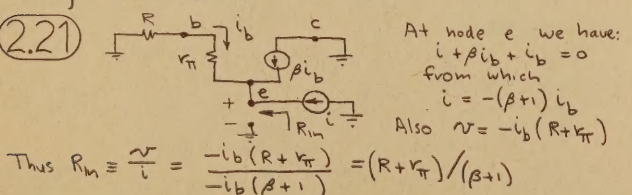 2.21
R
b
i_b
c
r_π
βi_b
e
+
-
R_in
i
At node e we have:
i + βi_b + i_b = 0
from which
i = -(β+1) i_b
Also v = -i_b (R+r_π)
Thus R_in ≡ v/i = -i_b (R + r_π) / -i_b (β + 1) = (R + r_π) / (β+1)